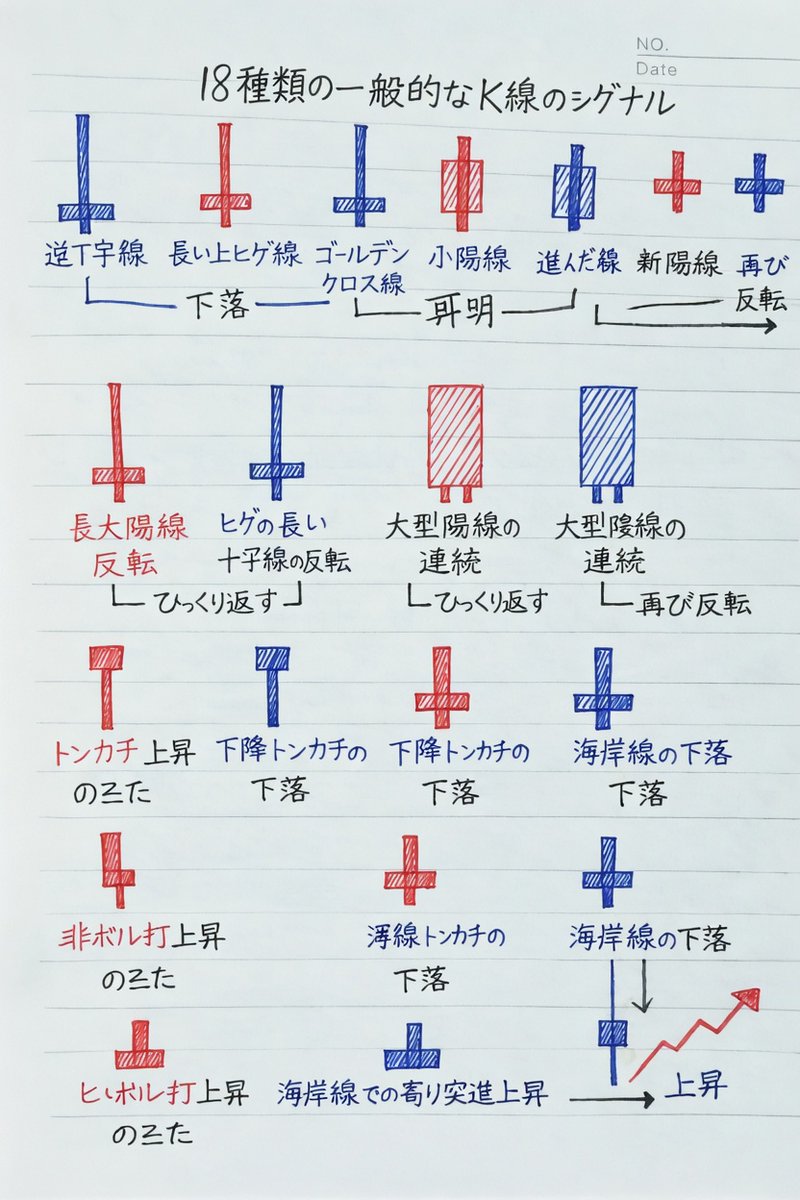 NO.
Date
18種類の一般的なK線のシグナル
逆丁字線 長い上ヒゲ線 ゴールデン 小陽線 進んだ線 新陽線 再び
クロス線 反転
下落 明
長大陽線 ヒゲの長い 大型陽線の 大型線の
反転 十字線の反転 連続 連続
ひっくり返す ひっくり返す 再び反転
トンカチ上昇 下降トンカチの 下降トンカチの 海岸線の下落
の三た 下落 下落 下落
非ボル打上昇 線トンカチの 海岸線の下落
の三た 下落
ヒレボル打上昇 海岸線での寄り突進上昇 上昇
の三た